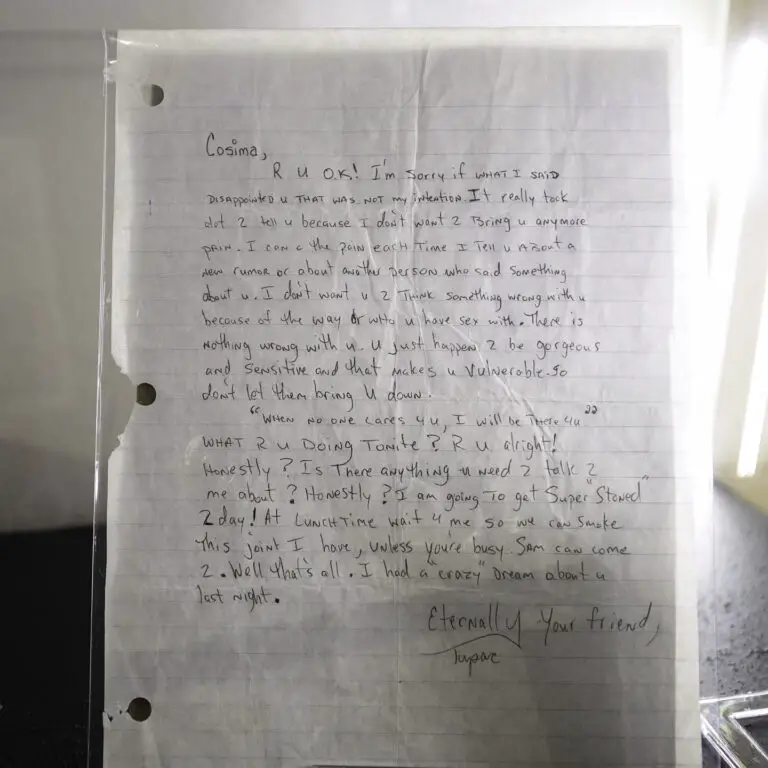 Cosima,
R U O.K! I'm sorry if WHAT I SAID
DISAPPOINTED u THAT WAS NOT my INTENTION. It really took
alot 2 tell u because I don't want 2 Bring u anymore
pain. I can c the pain each Time I Tell u About a
new rumor or about another person who said something
about u. I don't want u 2 Think something wrong with u
because of the way or who u have sex with. There is
Nothing wrong with u. u just happen 2 be gorgeous
and sensitive and that makes u Vulnerable. So
don't let them bring U down.
"WHEN NO ONE CARES 4 U, I will be There 4u"
WHAT R u DOING TONITE? R U alright!
Honestly? Is There anything u need 2 talk 2
me about? Honestly? I am going To get Super "Stoned"
2day! At LUNCHTIME wait 4 me so we can smoke
This joint I have, unless you're busy. Sam can come
2. Well that's all. I had a "crazy" Dream about u
last night.
Eternally Your friend,
Tupac